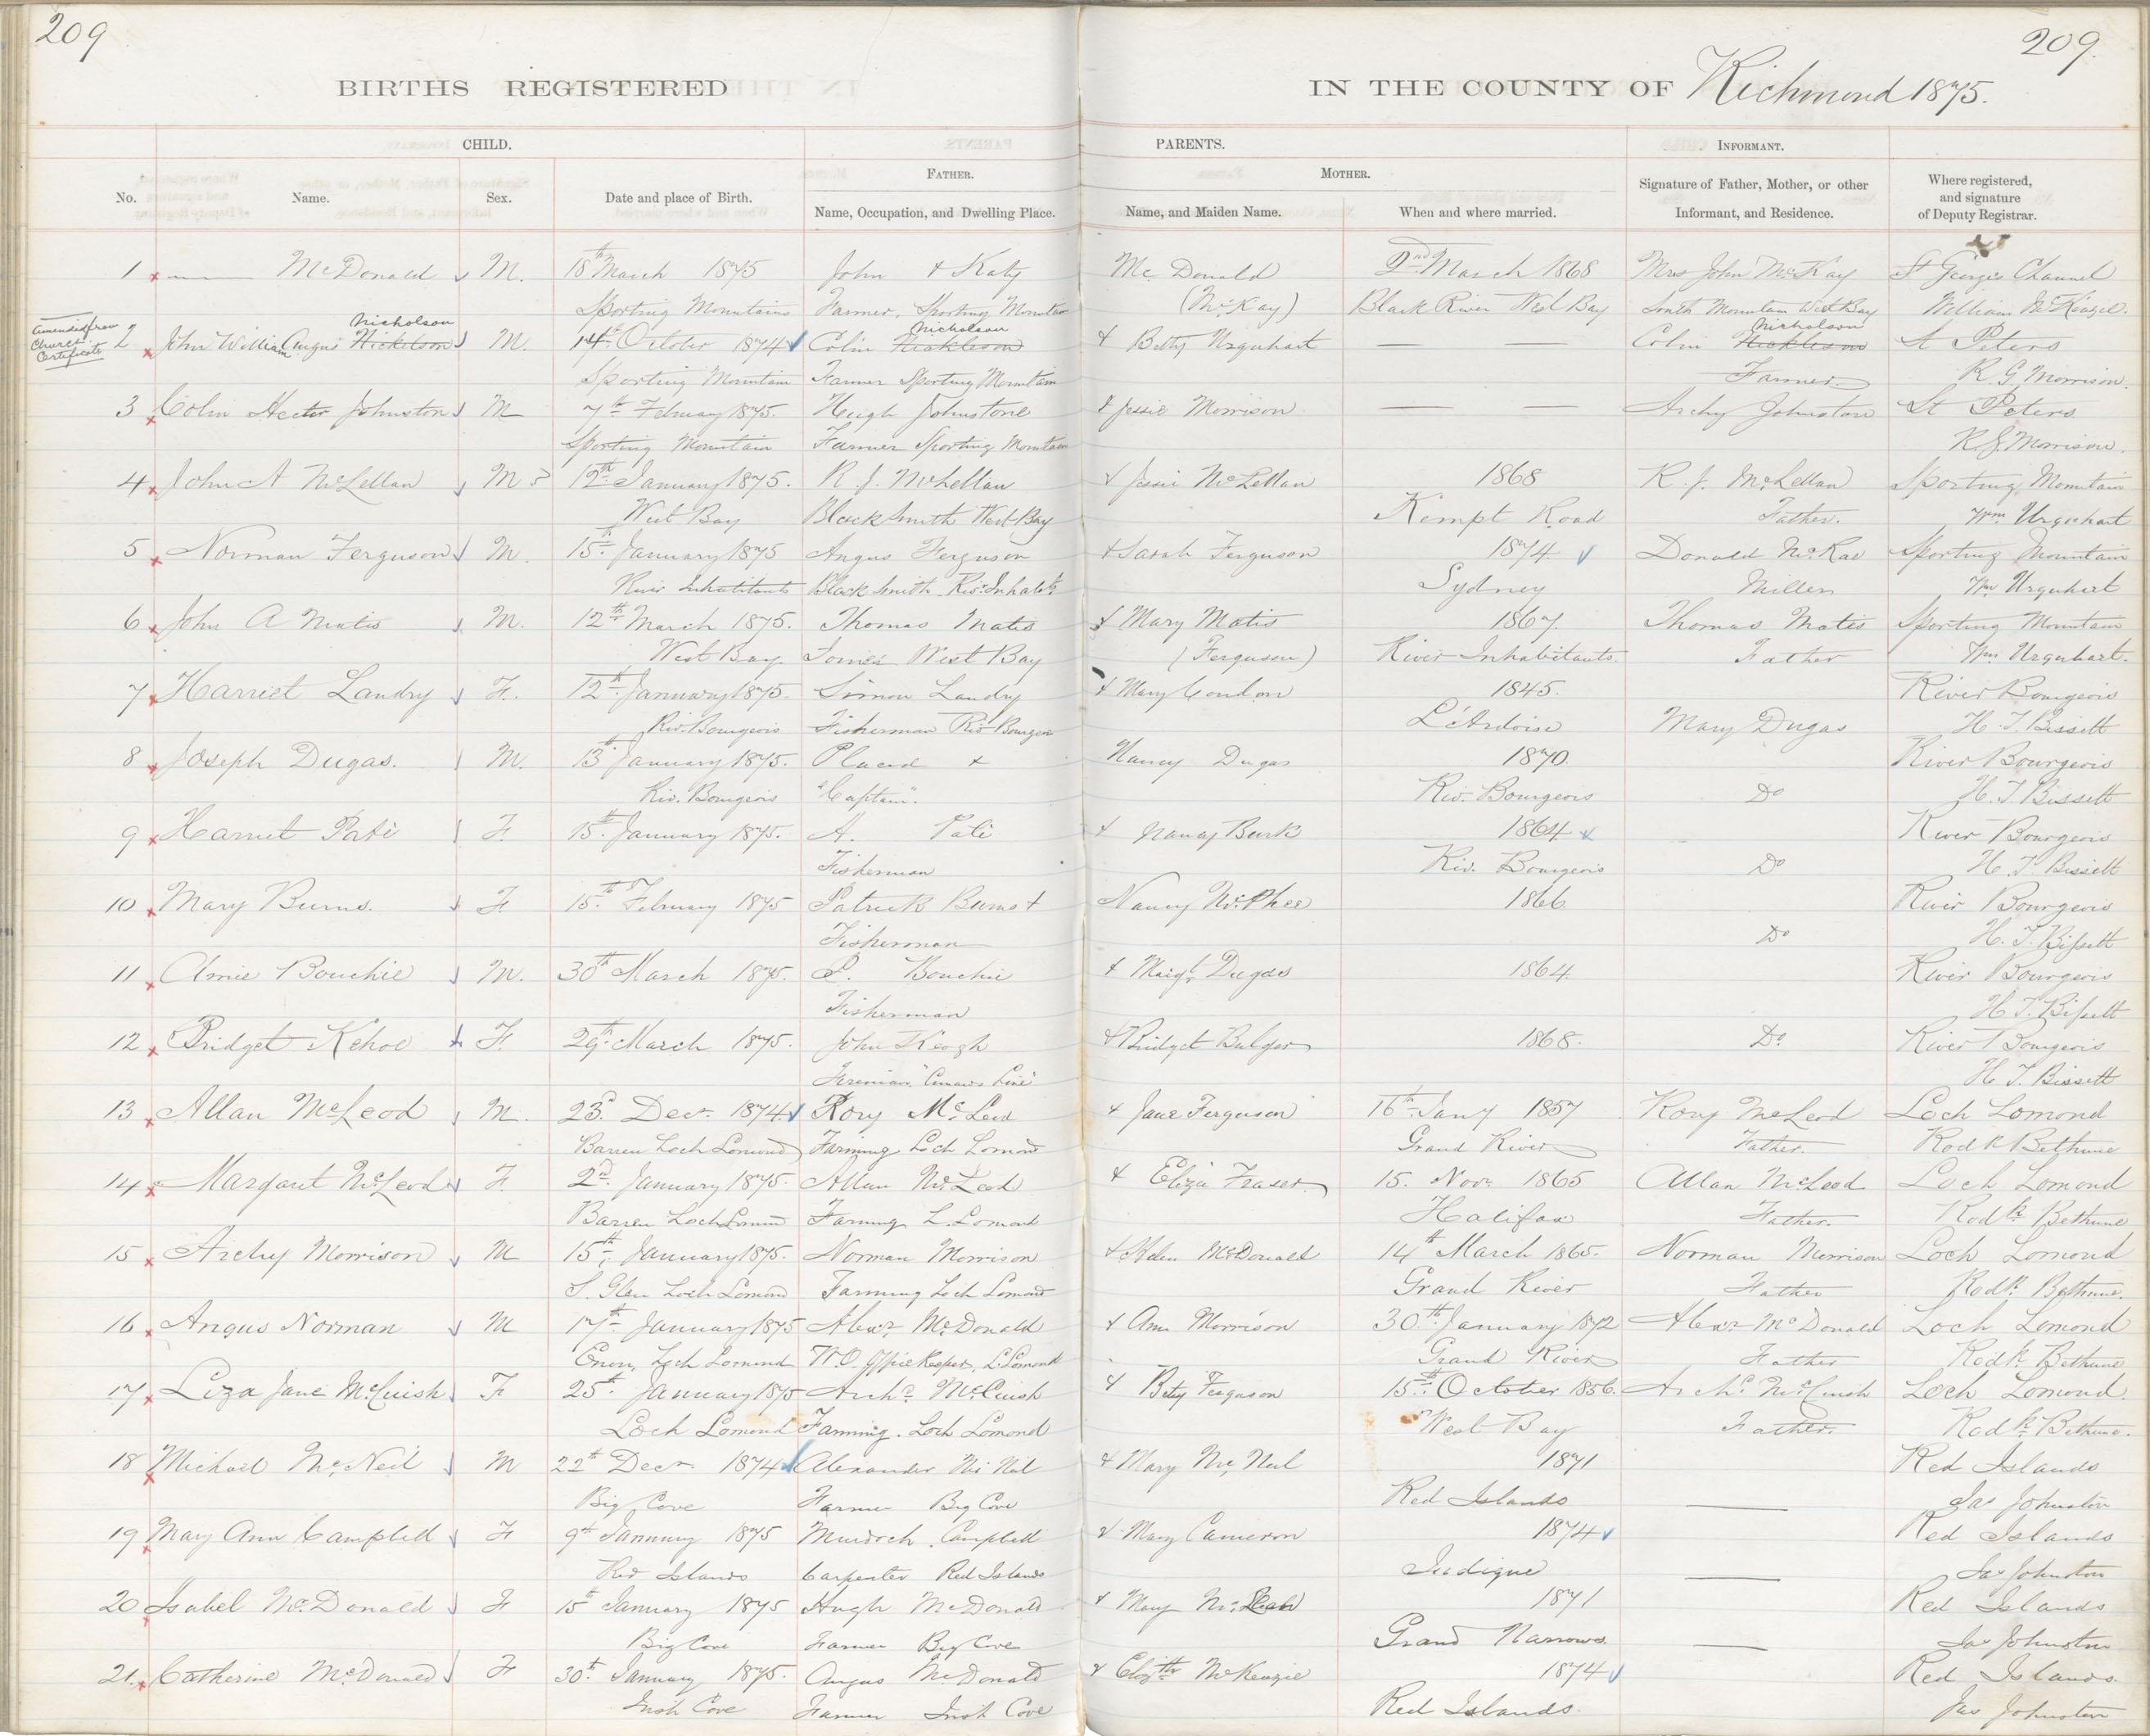 209
209.
BIRTHS REGISTERED IN THE COUNTY OF Richmond 1875.
CHILD. PARENTS. INFORMANT.
FATHER. MOTHER.
No. Name. Sex. Date and place of Birth. Name, Occupation, and Dwelling Place. Name, and Maiden Name. When and where married. Signature of Father, Mother, or other Informant, and Residence. Where registered, and signature of Deputy Registrar.
1 McDonald M. 18th March 1875 John & Katy Mc Donald 2nd March 1868 Mrs John McKay St Georges Channel
Sporting Mountains Farmer, Sporting Mountain (McKay) Black River West Bay South Mountain West Bay William McKenzie.
Amended from Church Certificate
Nicholson Nicholson Nicholson
2 John William Angus Nickelson M. 14th October 1874 Colin Nickleson & Betty Urquhart — — Colin Nickleson St Peters
Sporting Mountain Farmer Sporting Mountain Farmer. R. G Morrison.
3 Colin Hector Johnston M 7th February 1875. Hugh Johnstone & Jessie Morrison — — Archy Johnston St Peters
Sporting Mountain Farmer Sporting Mountain R. G. Morrison.
4 John A McLellan M 12th January 1875. R. J. McLellan & Jessie McLellan 1868 R. J. McLellan Sporting Mountain
West Bay Blacksmith West Bay Kempt Road Father. Wm Urquhart
5 Norman Ferguson M. 15th January 1875 Angus Ferguson & Sarah Ferguson 1874 Donald McRae Sporting Mountain
River Inhabitants Black Smith Riv. Inhabts Sydney Miller Wm Urquhart
6 John A Matis M. 12th March 1875. Thomas Matis & Mary Matis 1867. Thomas Matis Sporting Mountain
West Bay West Bay (Ferguson) River Inhabitants. Father Wm Urquhart.
7 Harriet Landry F. 12th January 1875. Simon Landry & Mary Condon 1845. River Bourgeois
Riv. Bourgeois Fisherman Riv Bourgeois L'Ardoise Mary Dugas H. T. Bissett
8 Joseph Dugas. M. 13th January 1875. Placid & Nancy Dugas 1870. River Bourgeois
Riv. Bourgeois "Captain". Riv. Bourgeois Do H. T. Bissett
9 Harriet Paté F. 15th January 1875. A. Paté & Nancy Burk 1864 River Bourgeois
Fisherman Riv. Bourgeois Do H. T. Bissett
10 Mary Burns. F. 15th February 1875 Patrick Burns & Nancy McPhee 1866 River Bourgeois
Fisherman Do H. T. Bissett
11 Amie Bouchie M. 30th March 1875. P. Bouchie & Margt. Dugas 1864 River Bourgeois
Fisherman H T. Bissett
12 Bridget Kehoe F. 29th March 1875. John Keogh & Bridget Bulger 1868. Do River Bourgeois
H. T. Bissett
13 Allan McLeod M. 23d Decr. 1874 Rory McLeod & Jane Ferguson 16th Jany 1857 Rory McLeod Loch Lomond
Barren Loch Lomond Farming Loch Lomond Grand River Father. Rodk Bethune
14 Margaret McLeod F. 2nd January 1875. Allan McLeod & Eliza Fraser 15. Novr 1865 Allan McLeod Loch Lomond
Barren Loch Lomond Farming L. Lomond Halifax Father. Rodk Bethune
15 Archy Morrison M 15th January 1875. Norman Morrison & Helen McDonald 14th March 1865. Norman Morrison Loch Lomond
S. Glen Loch Lomond Farming Loch Lomond Grand River Father Rodk. Bethune.
16 Angus Norman M 17th January 1875 Alexr. McDonald & Ann Morrison 30th January 1872 Alexr McDonald Loch Lomond
Enon, Loch Lomond W. O. office Keeper, L. Lomond Grand River Father Rodk. Bethune
17 Liza Jane McCuish F 25th January 1875 Archd. McCuish & Bety Ferguson 15th October 1856. Archd. McCuish Loch Lomond.
Loch Lomond Farming. Loch Lomond West Bay Father. Rodk. Bethune.
18 Michael McNeil M 22th Decr. 1874 Alexander McNeil & Mary McNeil 1871 Red Islands
Big Cove Farmer Big Cove Red Islands — Jas Johnston
19 Mary Ann Campbell F 9th January 1875 Murdoch Campbell & Mary Cameron 1874 Red Islands
Red Islands Carpenter Red Islands Judique — Jas Johnston
20 Isabel McDonald F 15th January 1875 Hugh McDonald & Mary McLean 1871 Red Islands
Big Cove Farmer Big Cove Grand Narrows — Jas Johnston
21. Catherine McDonald F 30th January 1875. Angus McDonald & Elizth McKenzie 1874 Red Islands.
Irish Cove Farmer Irish Cove Red Islands. Jas Johnston